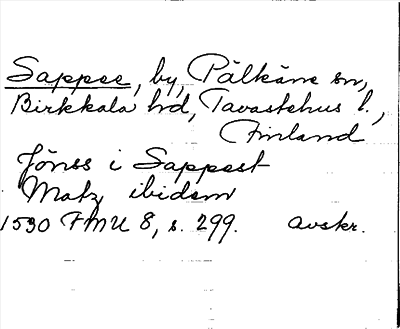 Sappee, by, Pälkäne sn,
Birkkala hd, Tavastehus l.,
Finland
Jönss i Sappest
Matz ibidem
1530 FMU 8, s. 299. avskr.